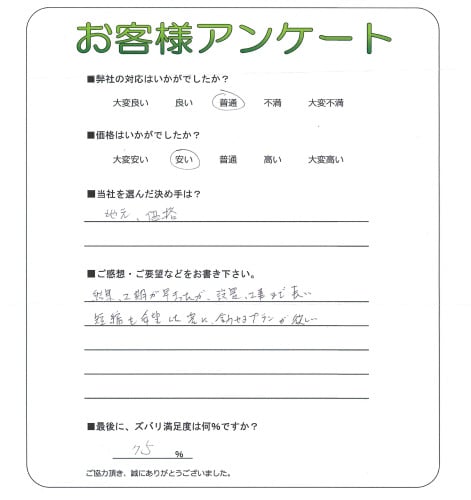 お客様アンケート
■弊社の対応はいかがでしたか？
大変良い 良い 普通 不満 大変不満
■価格はいかがでしたか？
大変安い 安い 普通 高い 大変高い
■当社を選んだ決め手は？
地元、価格
■ご感想・ご要望などをお書き下さい。
結果、工期が早まったが、設置、工事まで長い
短縮を希望した客に、合わせるプランが欲しい
■最後に、ズバリ満足度は何%ですか？
75 %
ご協力頂き、誠にありがとうございました。